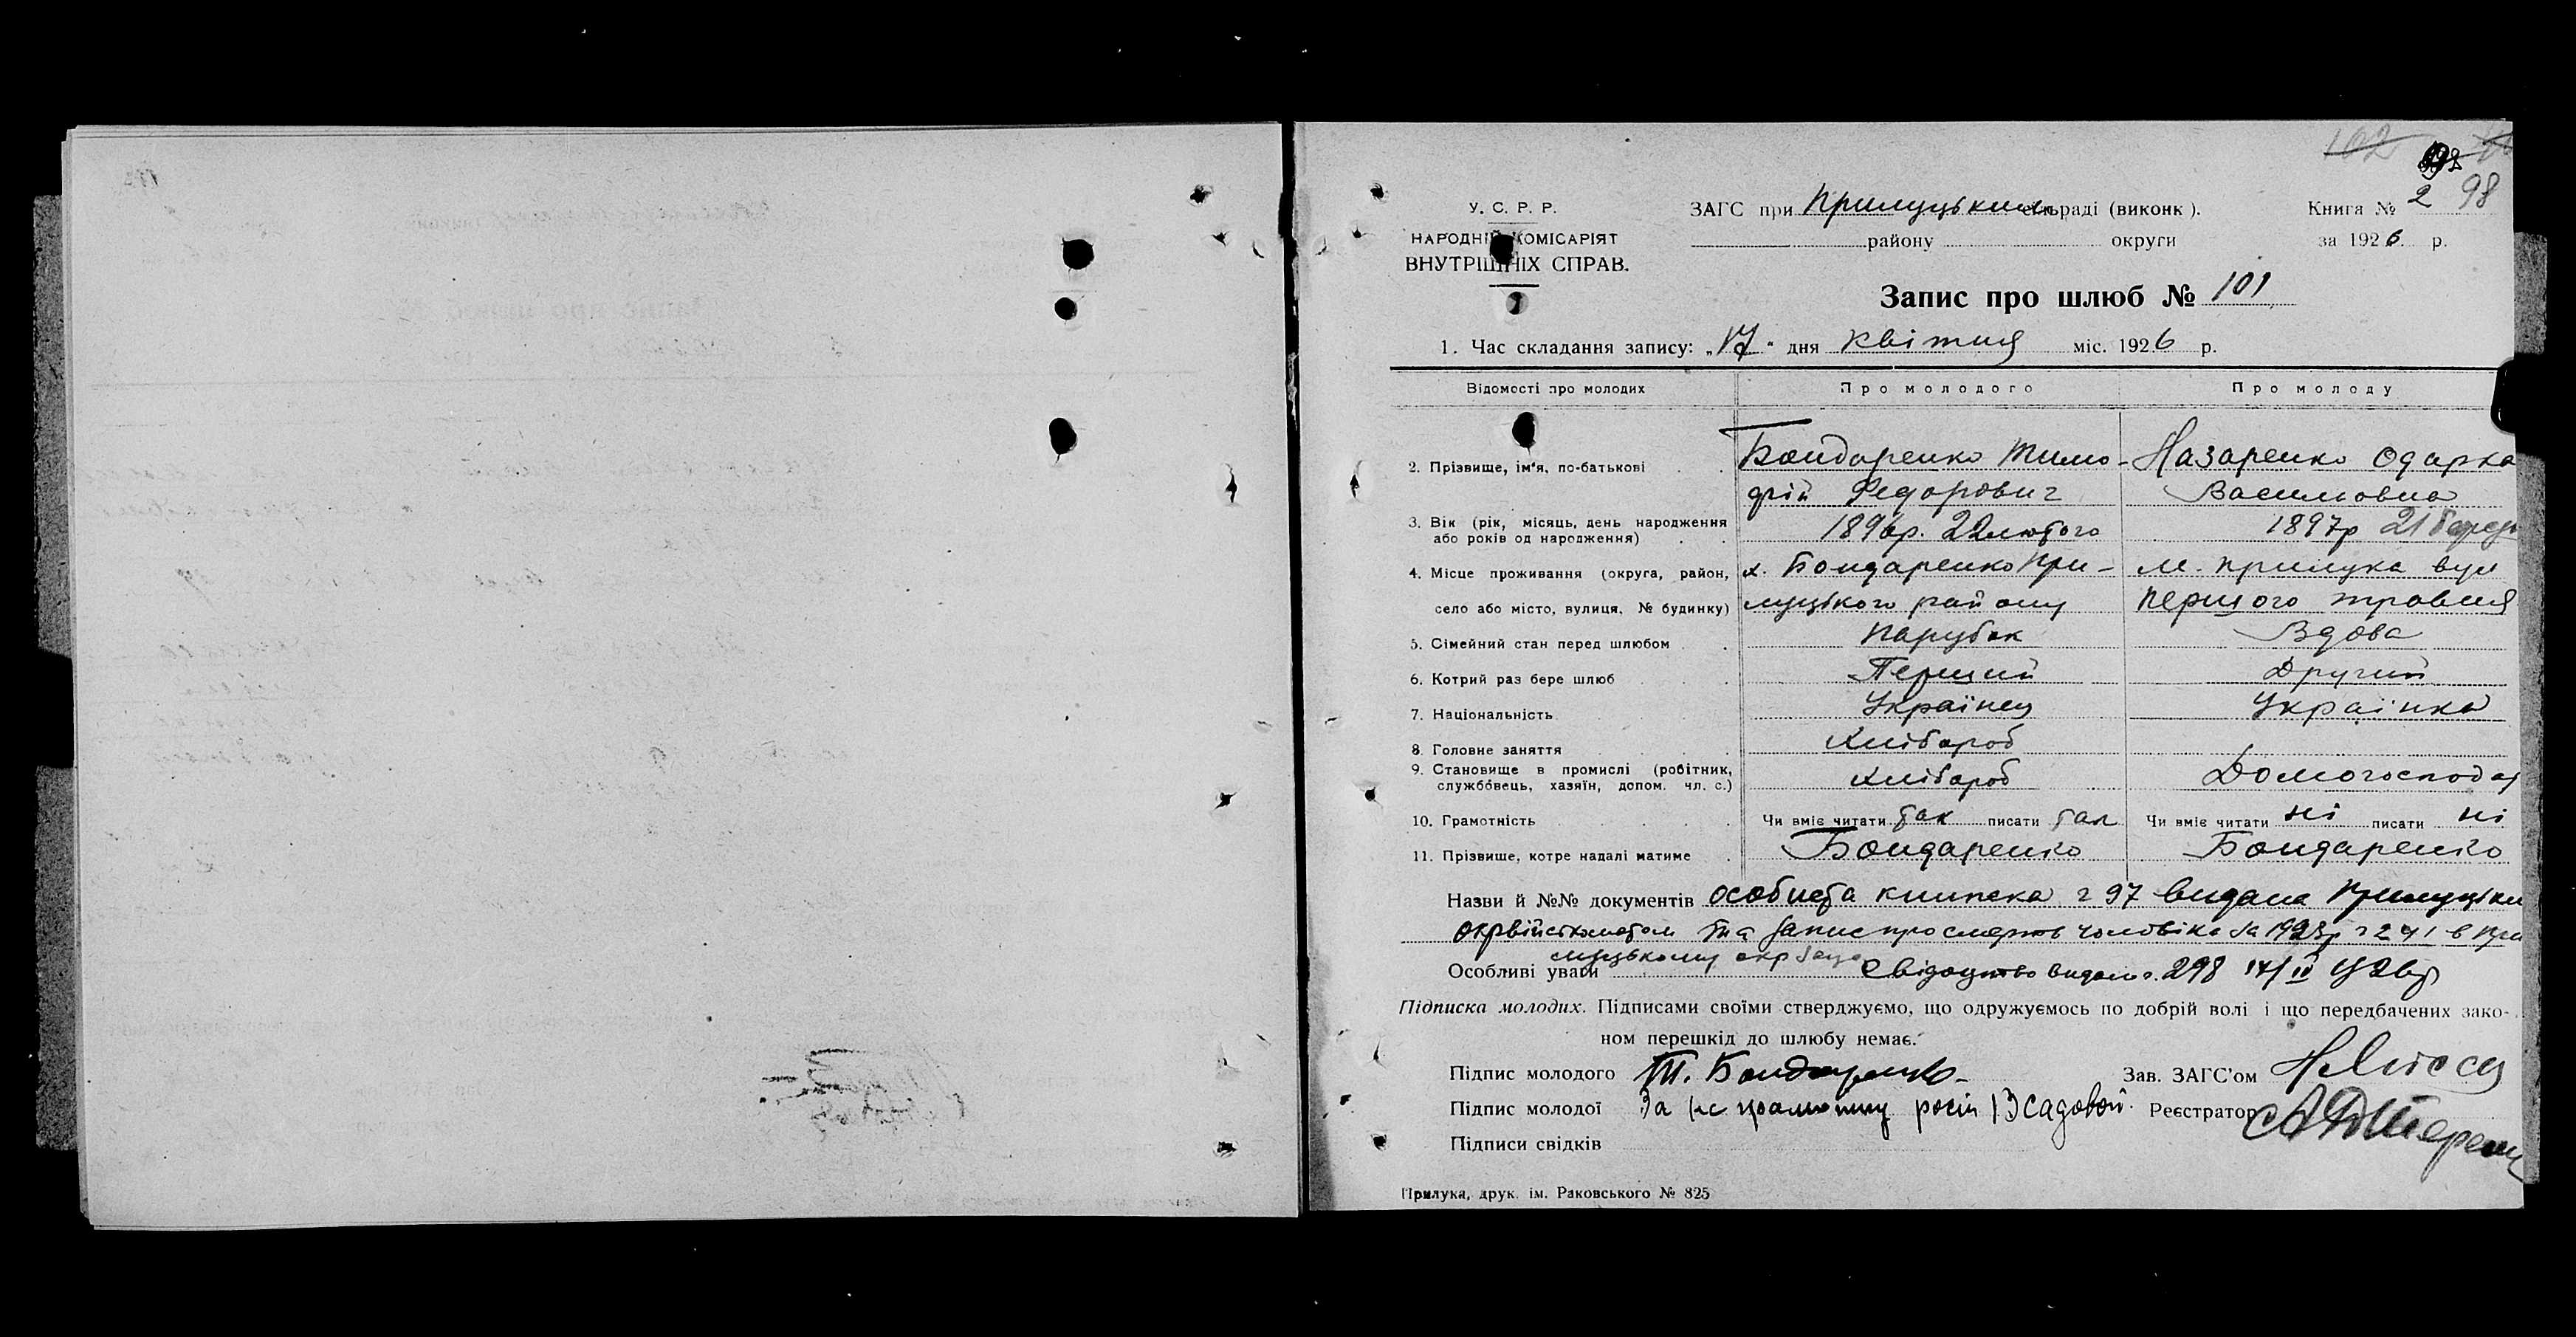 102
98
У. С. Р. Р.
НАРОДНІЙ КОМІСАРІЯТ
ВНУТРІШНІХ СПРАВ.
ЗАГС при Прилуцьким сільраді (виконк).
району округи
Книга № 2
за 1926 р.
Запис про шлюб № 101
1. Час складання запису: „17“ дня квітня міс. 1926 р.
Відомості про молодих Про молодого Про молоду
2. Прізвище, ім'я, по-батькові Бондаренко Тимо- Назаренко Одарка
Федорович Василовна
3. Вік (рік, місяць, день народження 1896р. 22 лютого 1897р 21
або років од народження)
4. Місце проживання (округа, район, х. Бондаренко При- м. Прилука вул
село або місто, вулиця, № будинку) луцького району Першого травня
5. Сімейний стан перед шлюбом Парубок Вдова
6. Котрий раз бере шлюб Перший Другий
7. Національність Українец Українка
8. Головне заняття Хлібороб
9. Становище в промислі (робітник, Хлібороб Домогоспода
службовець, хазяїн, допом. чл. с.)
10. Грамотність Чи вміє читати так писати так Чи вміє читати ні писати ні
11. Прізвище, котре надалі матиме Бондаренко Бондаренко
Назви й №№ документів особиста книжка ч 97 видана
та запис про смерть чоловіка за 1923р ч 241 в При
луцькому
Особливі уваги Свідоцтво видано ч. 298 17/IV 1926р
Підписка молодих. Підписами своїми стверджуємо, що одружуємось по добрій волі і що передбачених зако-
ном перешкід до шлюбу немає.
Підпис молодого Т. Бондаренко
Зав. ЗАГС'ом
Підпис молодої За Садовой
Реєстратор
Підписи свідків
Прилука, друк. ім. Раковського № 825